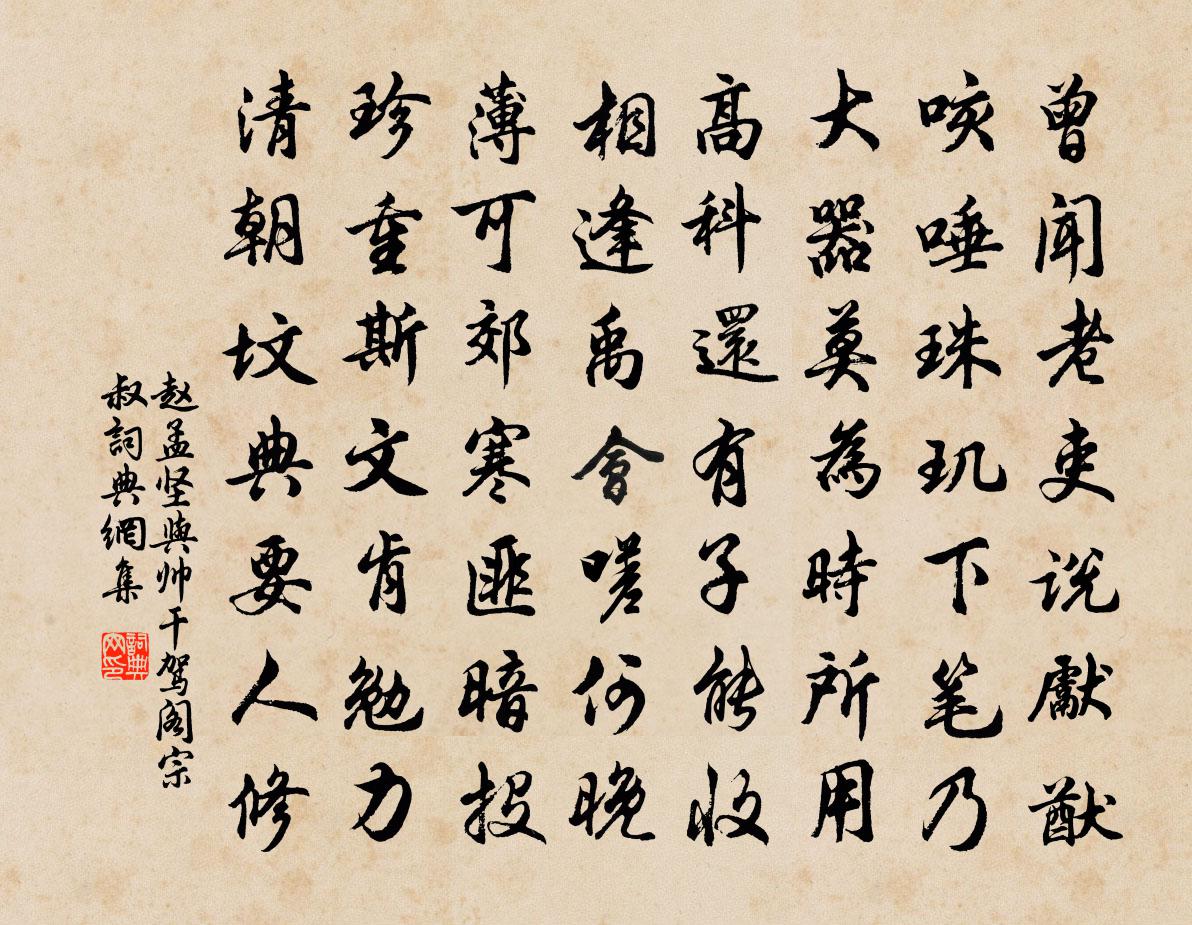 曾聞老吏説獻猷
咳唾珠玑下笔乃
大器莫為時所用
高科還有子能收
相逢禹會嗟何晚
薄可郊寒匪暗投
珍重斯文肯勉力
清朝坟典要人修
赵孟坚與帅干驾阁宗
叔詞典網集
詞典
网印